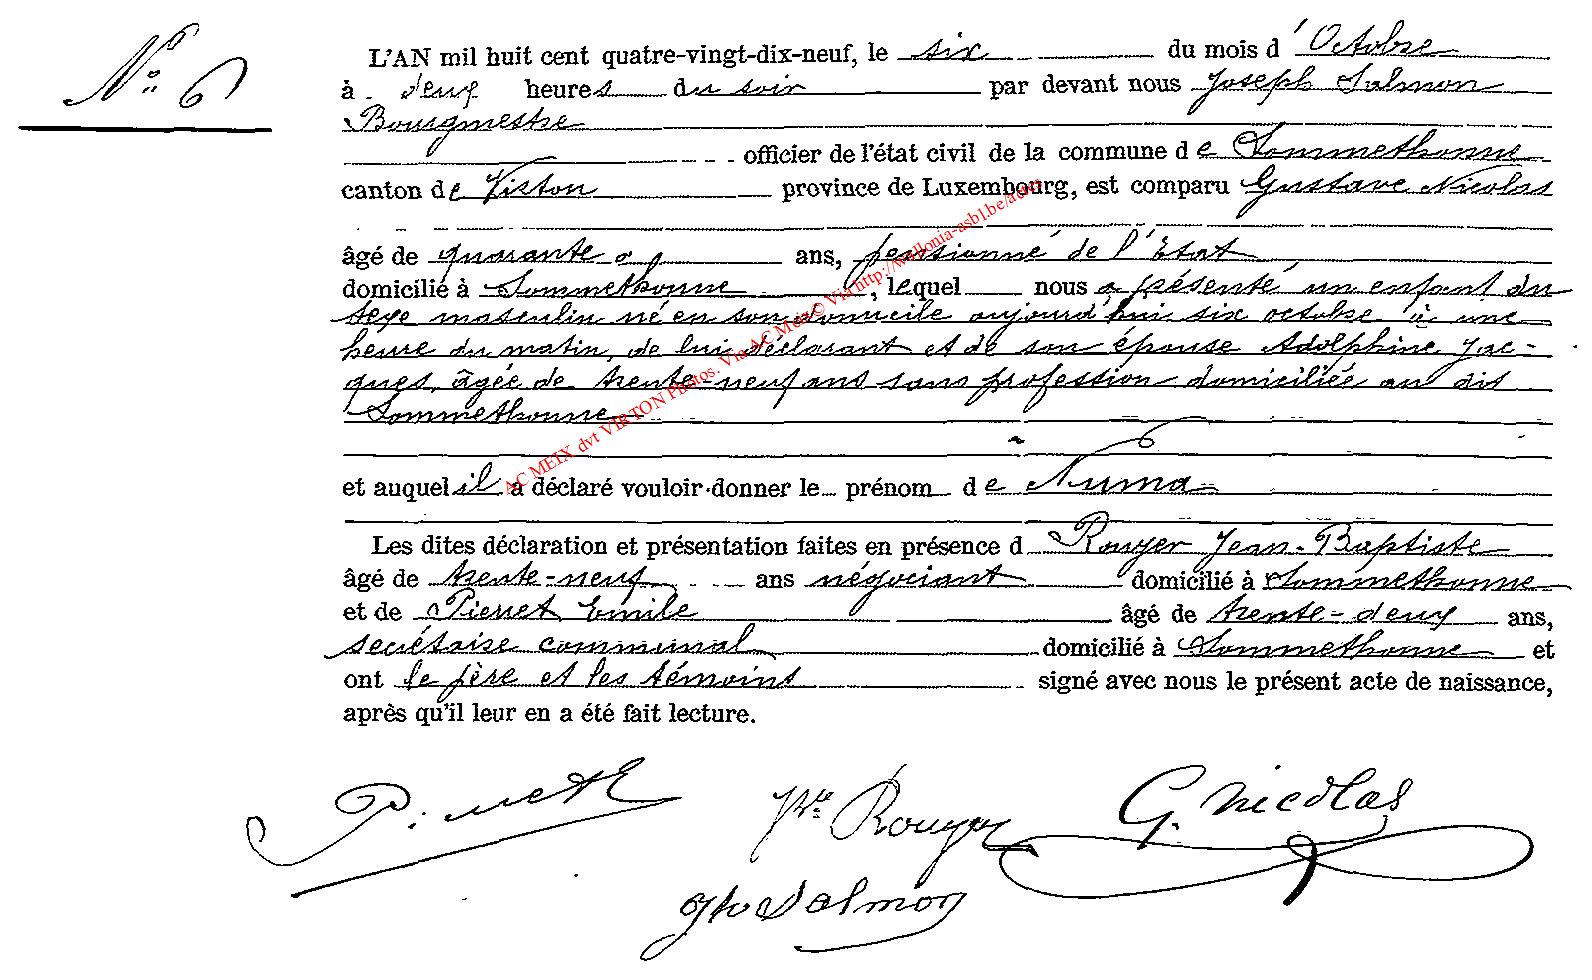 N° 6
L'AN mil huit cent quatre-vingt-dix-neuf, le six du mois d'Octobre
à deux heures du soir par devant nous Joseph Salmon
Bourgmestre
officier de l'état civil de la commune de Sommethonne
canton de Virton province de Luxembourg, est comparu Gustave Nicolas
âgé de quarante ans, pensionné de l'Etat
domicilié à Sommethonne, lequel nous a présenté un enfant du
sexe masculin né en son domicile aujourd'hui six octobre à une
heure du matin, de lui déclarant et de son épouse Adolphine Jac-
ques, âgée de trente-neuf ans sans profession domiciliée au dit
Sommethonne
et auquel il a déclaré vouloir donner le prénom de Numa
Les dites déclaration et présentation faites en présence d Rouyer Jean-Baptiste
âgé de trente-neuf ans négociant domicilié à Sommethonne
et de Pierret Emile âgé de trente-deux ans,
secrétaire communal domicilié à Sommethonne et
ont le père et les témoins signé avec nous le présent acte de naissance,
après qu'il leur en a été fait lecture.
Rouyer G. Nicolas
Salmon
AC MEIX dvt VIRTON Photos. Via AC Meix © Via http://wallonia-asbl.be/actes